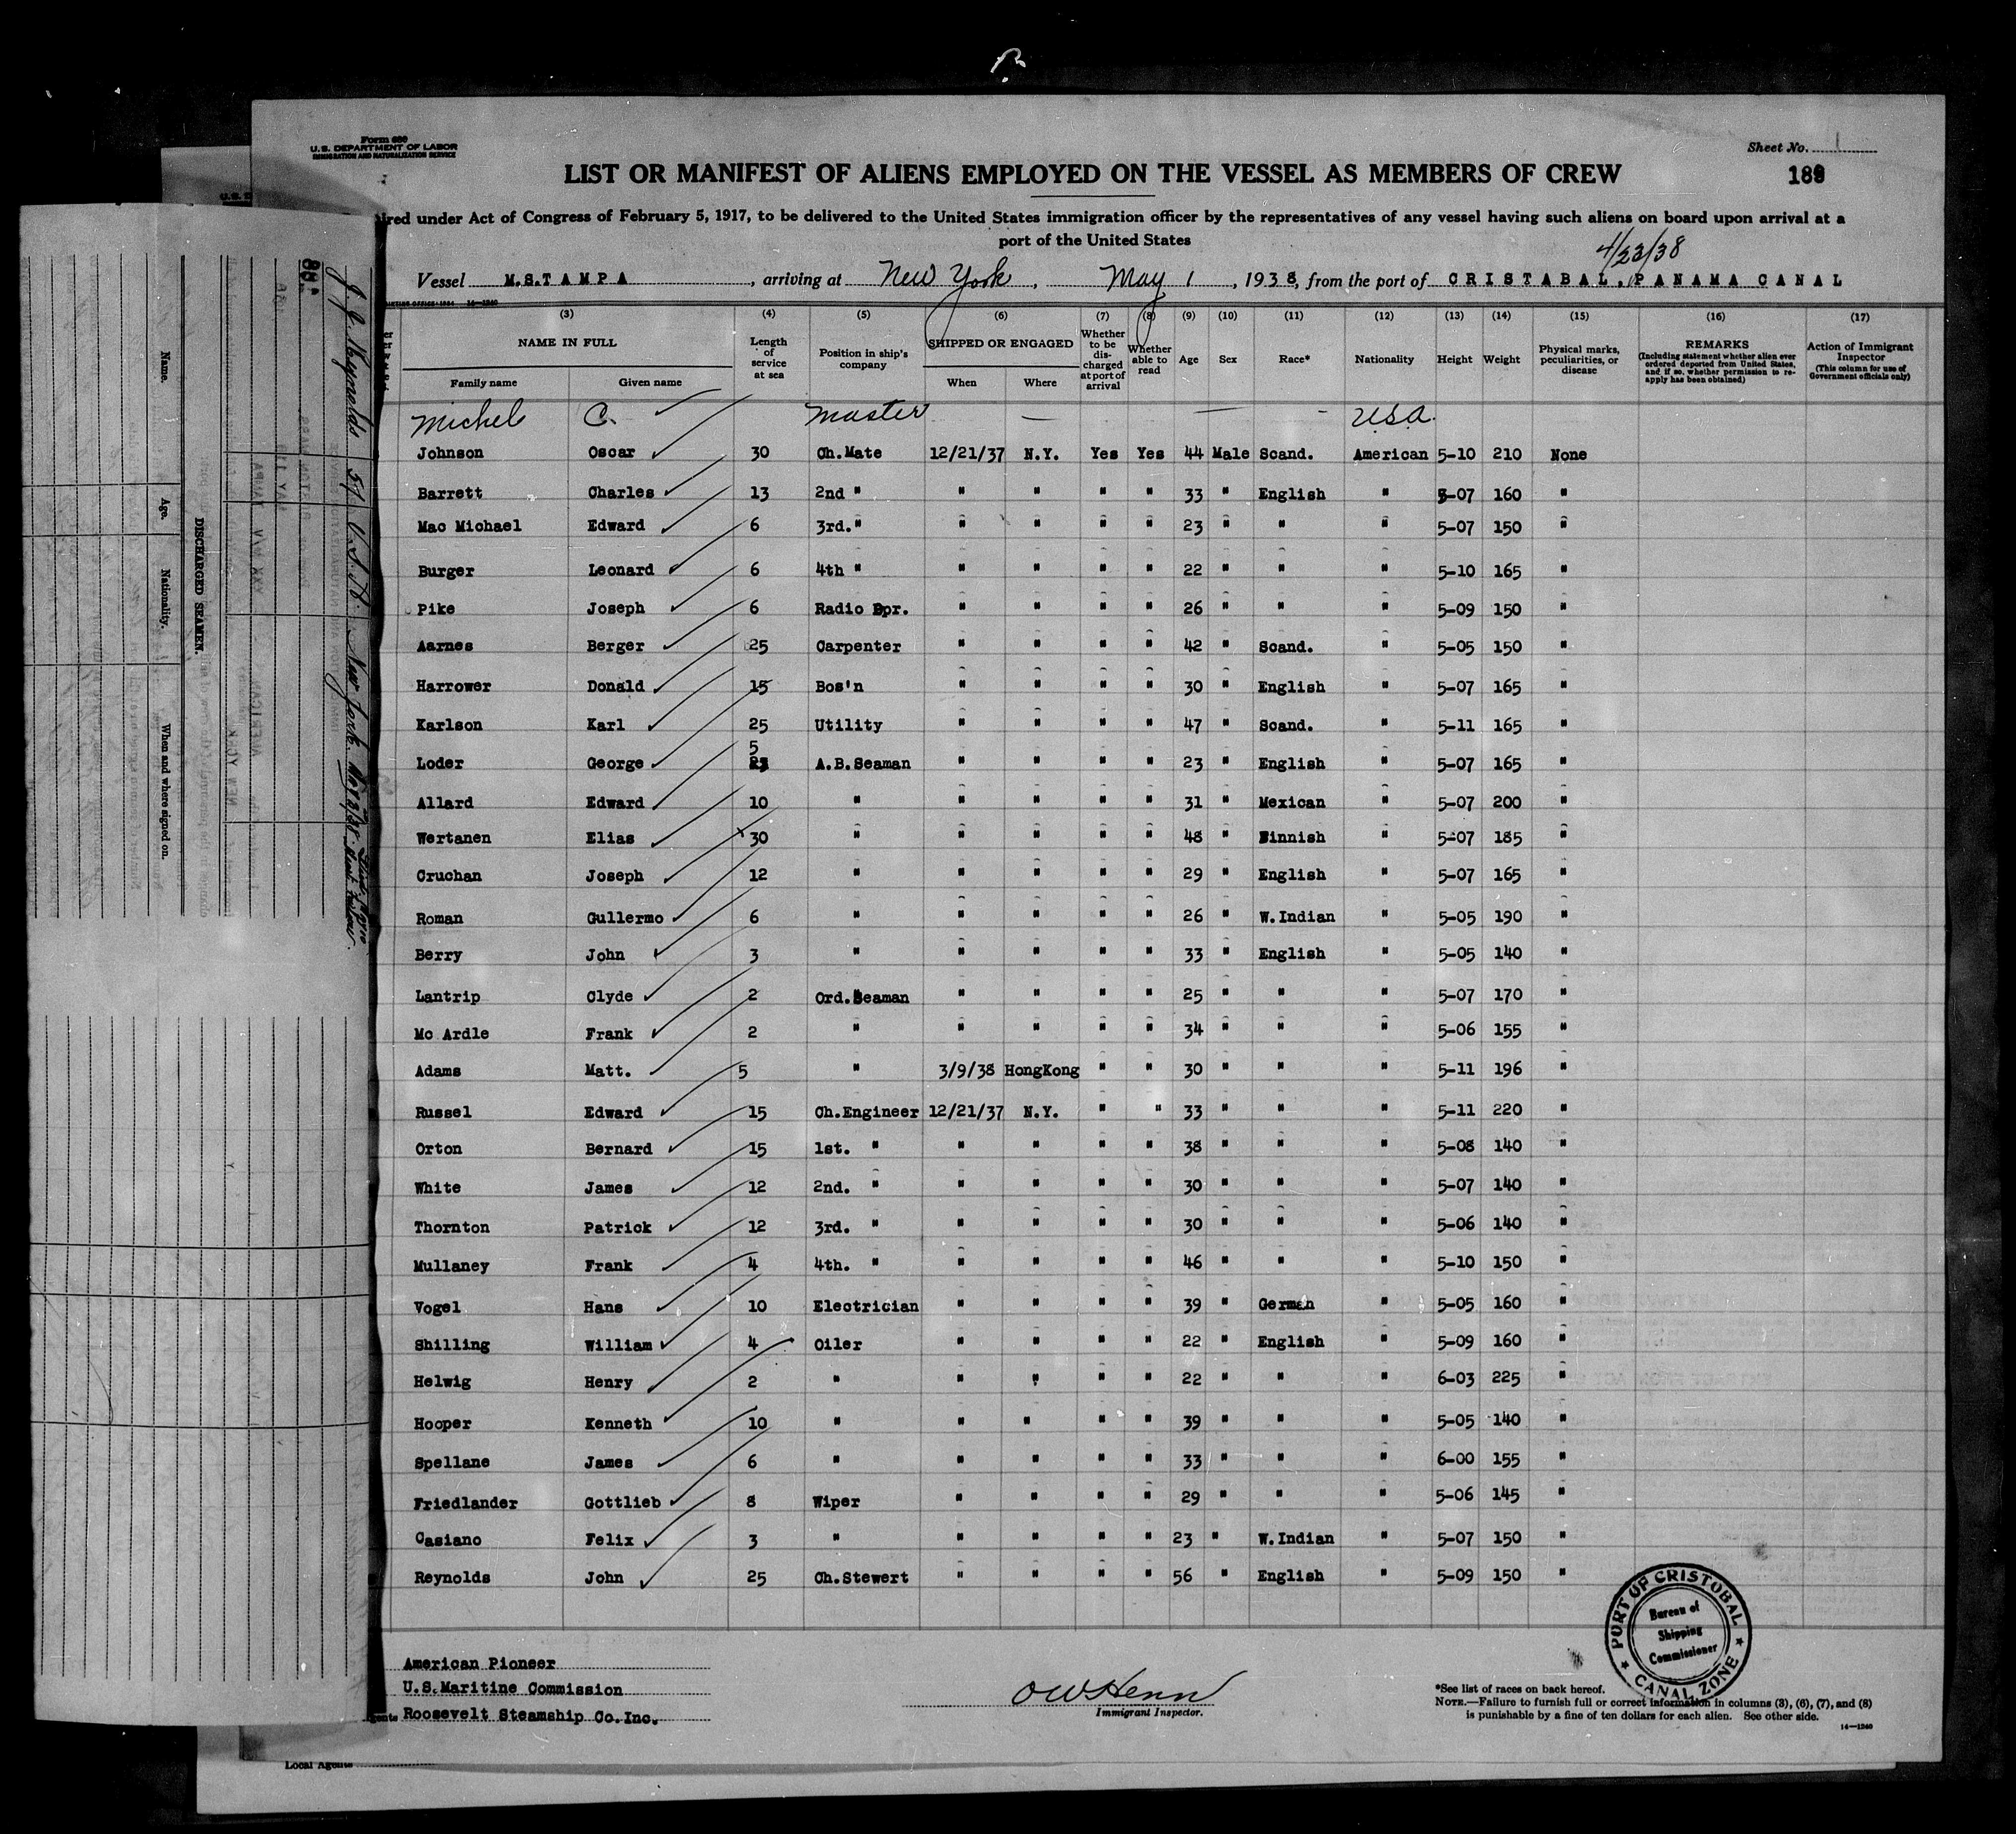 Form 680
U.S. DEPARTMENT OF LABOR
IMMIGRATION AND NATURALIZATION SERVICE
Sheet No. 1
LIST OR MANIFEST OF ALIENS EMPLOYED ON THE VESSEL AS MEMBERS OF CREW
189
ired under Act of Congress of February 5, 1917, to be delivered to the United States immigration officer by the representatives of any vessel having such aliens on board upon arrival at a
port of the United States
4/23/38
Vessel M.S.TAMPA, arriving at New York, May 1, 1938, from the port of CRISTABAL, PANAMA CANAL
(3) (4) (5) (6) (7) (8) (9) (10) (11) (12) (13) (14) (15) (16) (17)
NAME IN FULL Family name Given name
Length of service at sea
Position in ship's company
SHIPPED OR ENGAGED When Where
Whether to be discharged at port of arrival
Whether able to read
Age Sex Race* Nationality Height Weight
Physical marks, peculiarities, or disease
REMARKS (Including statement whether alien ever ordered deported from United States, and if so, whether permission to re-apply has been obtained)
Action of Immigrant Inspector (This column for use of Government officials only)
Michel C. Master — — - USA.
Johnson Oscar 30 Ch.Mate 12/21/37 N.Y. Yes Yes 44 Male Scand. American 5-10 210 None
Barrett Charles 13 2nd " " " " " 33 " English " 5-07 160 "
Mac Michael Edward 6 3rd." " " " " 23 " " " 5-07 150 "
Burger Leonard 6 4th " " " " " 22 " " " 5-10 165 "
Pike Joseph 6 Radio Opr. " " " " 26 " " " 5-09 150 "
Aarnes Berger 25 Carpenter " " " " 42 " Scand. " 5-05 150 "
Harrower Donald 15 Bos'n " " " " 30 " English " 5-07 165 "
Karlson Karl 25 Utility " " " " 47 " Scand. " 5-11 165 "
Loder George 5 A.B.Seaman " " " " 23 " English " 5-07 165 "
Allard Edward 10 " " " " " 31 " Mexican " 5-07 200 "
Wertanen Elias 30 " " " " " 48 " Finnish " 5-07 185 "
Cruchan Joseph 12 " " " " " 29 " English " 5-07 165 "
Roman Gullermo 6 " " " " " 26 " W.Indian " 5-05 190 "
Berry John 3 " " " " " 33 " English " 5-05 140 "
Lantrip Clyde 2 Ord.Seaman " " " " 25 " " " 5-07 170 "
Mc Ardle Frank 2 " " " " " 34 " " " 5-06 155 "
Adams Matt. 5 " 3/9/38 HongKong " " 30 " " " 5-11 196 "
Russel Edward 15 Ch.Engineer 12/21/37 N.Y. " " 33 " " " 5-11 220 "
Orton Bernard 15 1st. " " " " " 38 " " " 5-08 140 "
White James 12 2nd. " " " " " 30 " " " 5-07 140 "
Thornton Patrick 12 3rd. " " " " " 30 " " " 5-06 140 "
Mullaney Frank 4 4th. " " " " " 46 " " " 5-10 150 "
Vogel Hans 10 Electrician " " " " 39 " German " 5-05 160 "
Shilling William 4 Oiler " " " " 22 " English " 5-09 160 "
Helwig Henry 2 " " " " " 22 " " " 6-03 225 "
Hooper Kenneth 10 " " " " " 39 " " " 5-05 140 "
Spellane James 6 " " " " " 33 " " " 6-00 155 "
Friedlander Gottlieb 8 Wiper " " " " 29 " " " 5-06 145 "
Casiano Felix 3 " " " " " 23 " W.Indian " 5-07 150 "
Reynolds John 25 Ch.Stewert " " " " 56 " English " 5-09 150 "
American Pioneer
U.S.Maritine Commission
Roosevelt Steamship Co.Inc.
OWHenn
Immigrant Inspector.
PORT OF CRISTOBAL
Bureau of
Shipping
Commissioner
CANAL ZONE
*See list of races on back hereof.
NOTE.—Failure to furnish full or correct information in columns (3), (6), (7), and (8)
is punishable by a fine of ten dollars for each alien. See other side.
14—1240
Local Agents
DISCHARGED SEAMEN.
Name. Age. Nationality. When and where signed on.
J. J. Reynolds 57 U.S.A. New York